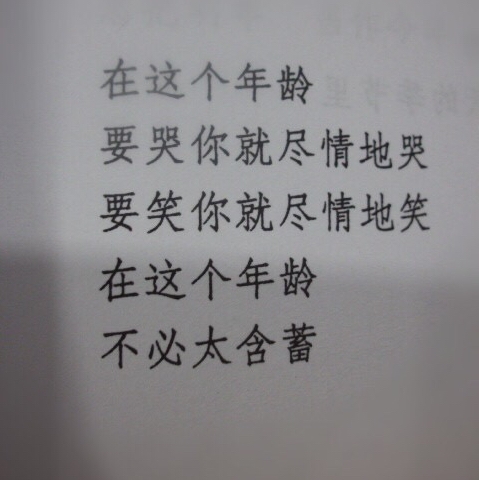 在这个年龄
要哭你就尽情地哭
要笑你就尽情地笑
在这个年龄
不必太含蓄